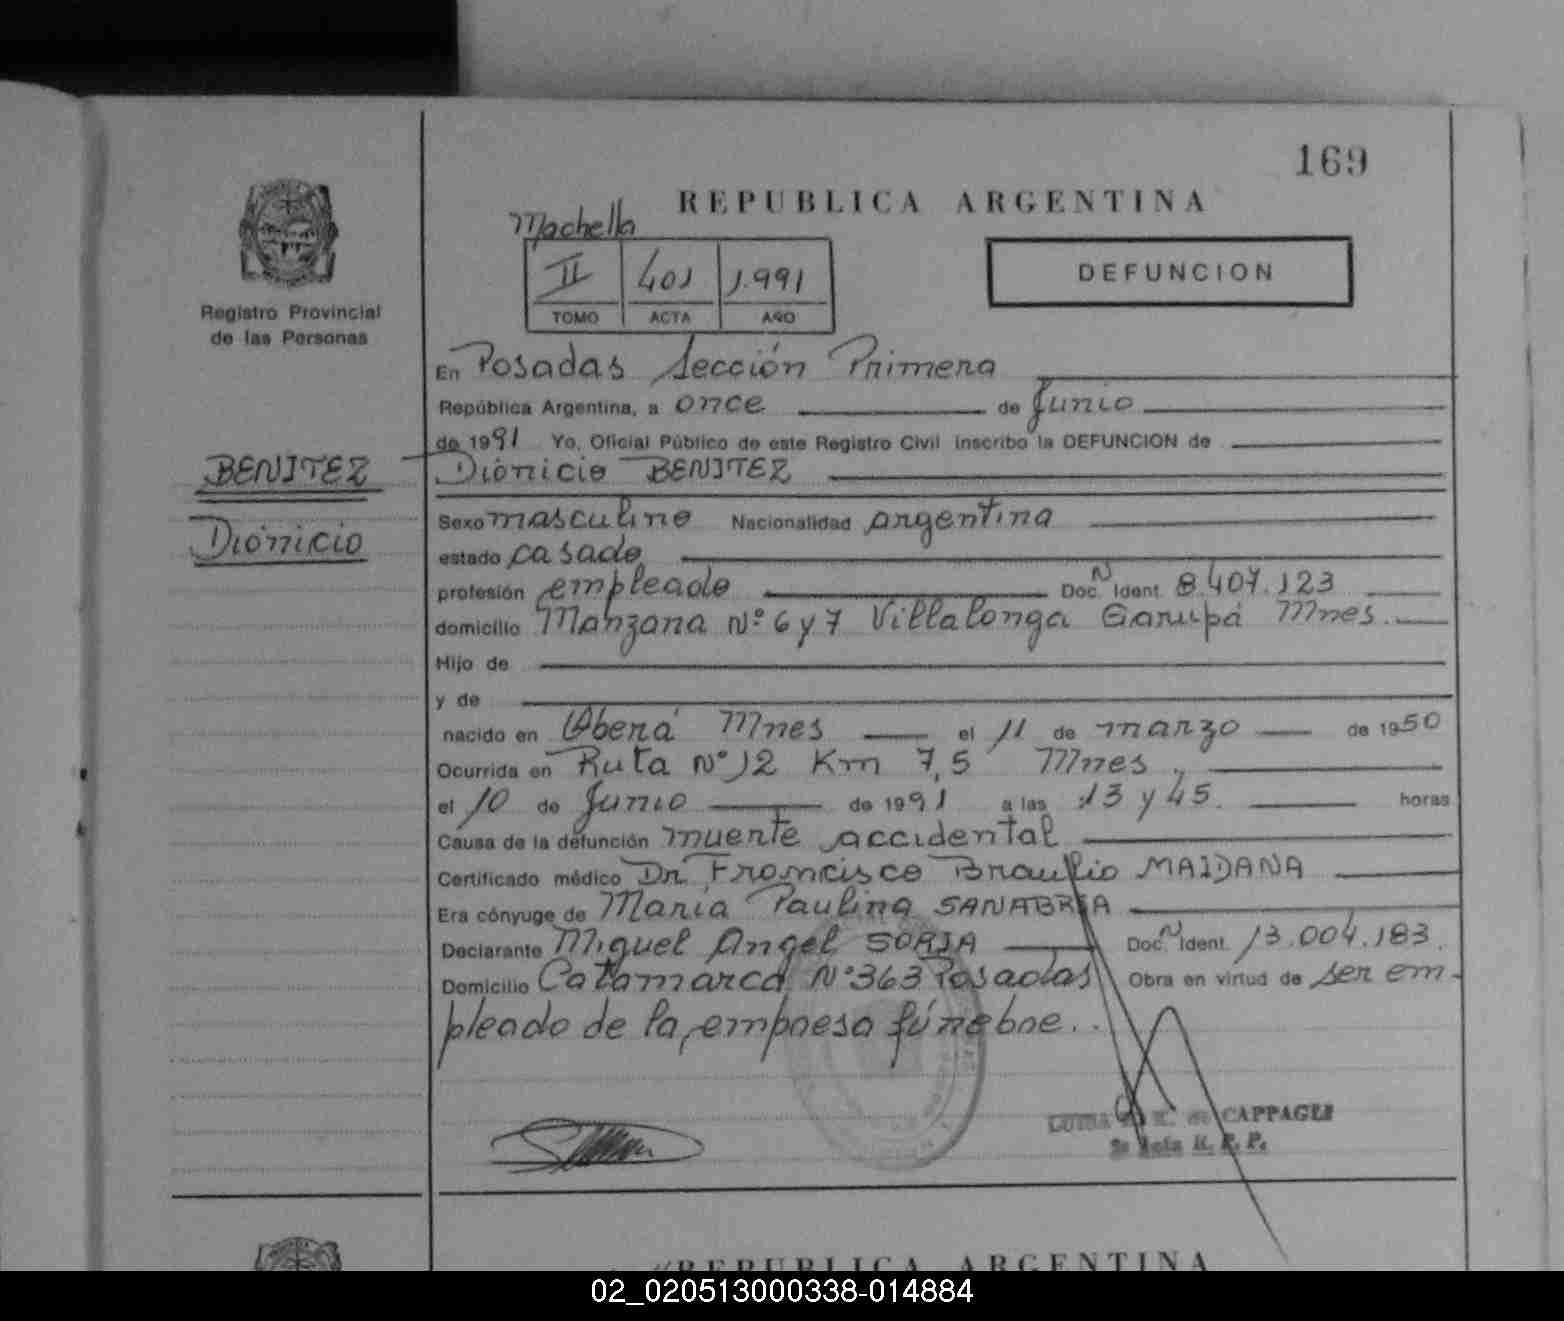 169
REPUBLICA ARGENTINA
Machella
II 401 1.991
TOMO ACTA AÑO
DEFUNCION
Registro Provincial
de las Personas
En Posadas Sección Primera
República Argentina, a once de Junio
de 1991 Yo, Oficial Público de este Registro Civil inscribo la DEFUNCION de
BENITEZ
Dionicio
Dionicio BENITEZ
Sexo masculino Nacionalidad argentina
estado casado
profesión empleado Doc. N Ident. 8.407.123
domicilio Manzana Nº 6 y 7 Villalonga Garupá Mnes.
Hijo de
y de
nacido en Oberá Mnes el 11 de marzo de 1950
Ocurrida en Ruta Nº 12 Km 7,5 Mnes.
el 10 de Junio de 1991 a las 13 y 45. horas
Causa de la defunción muerte accidental
Certificado médico Dr. Francisco Braulio MAIDANA
Era cónyuge de María Paulina SANABRIA
Declarante Miguel Angel SORIA Doc. N Ident. 13.004.183.
Domicilio Catamarca Nº 363 Posadas Obra en virtud de ser em-
pleado de la empresa fúnebre..
LUISA de CAPPAGLI
R. P. P.
REPUBLICA ARGENTINA
02_020513000338-014884